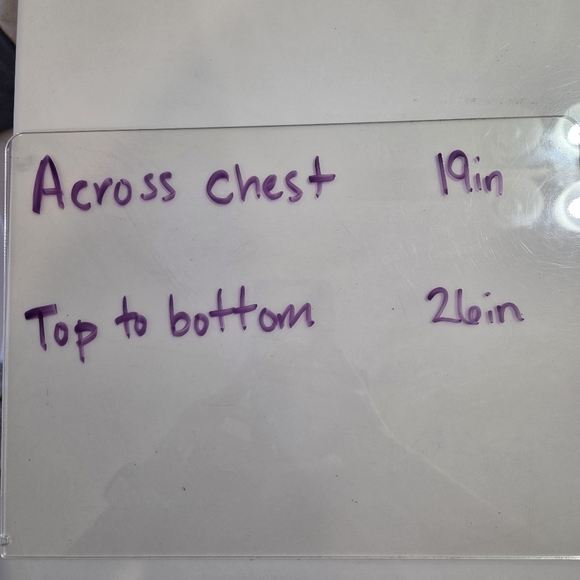 Across chest 19in
Top to bottom 26in